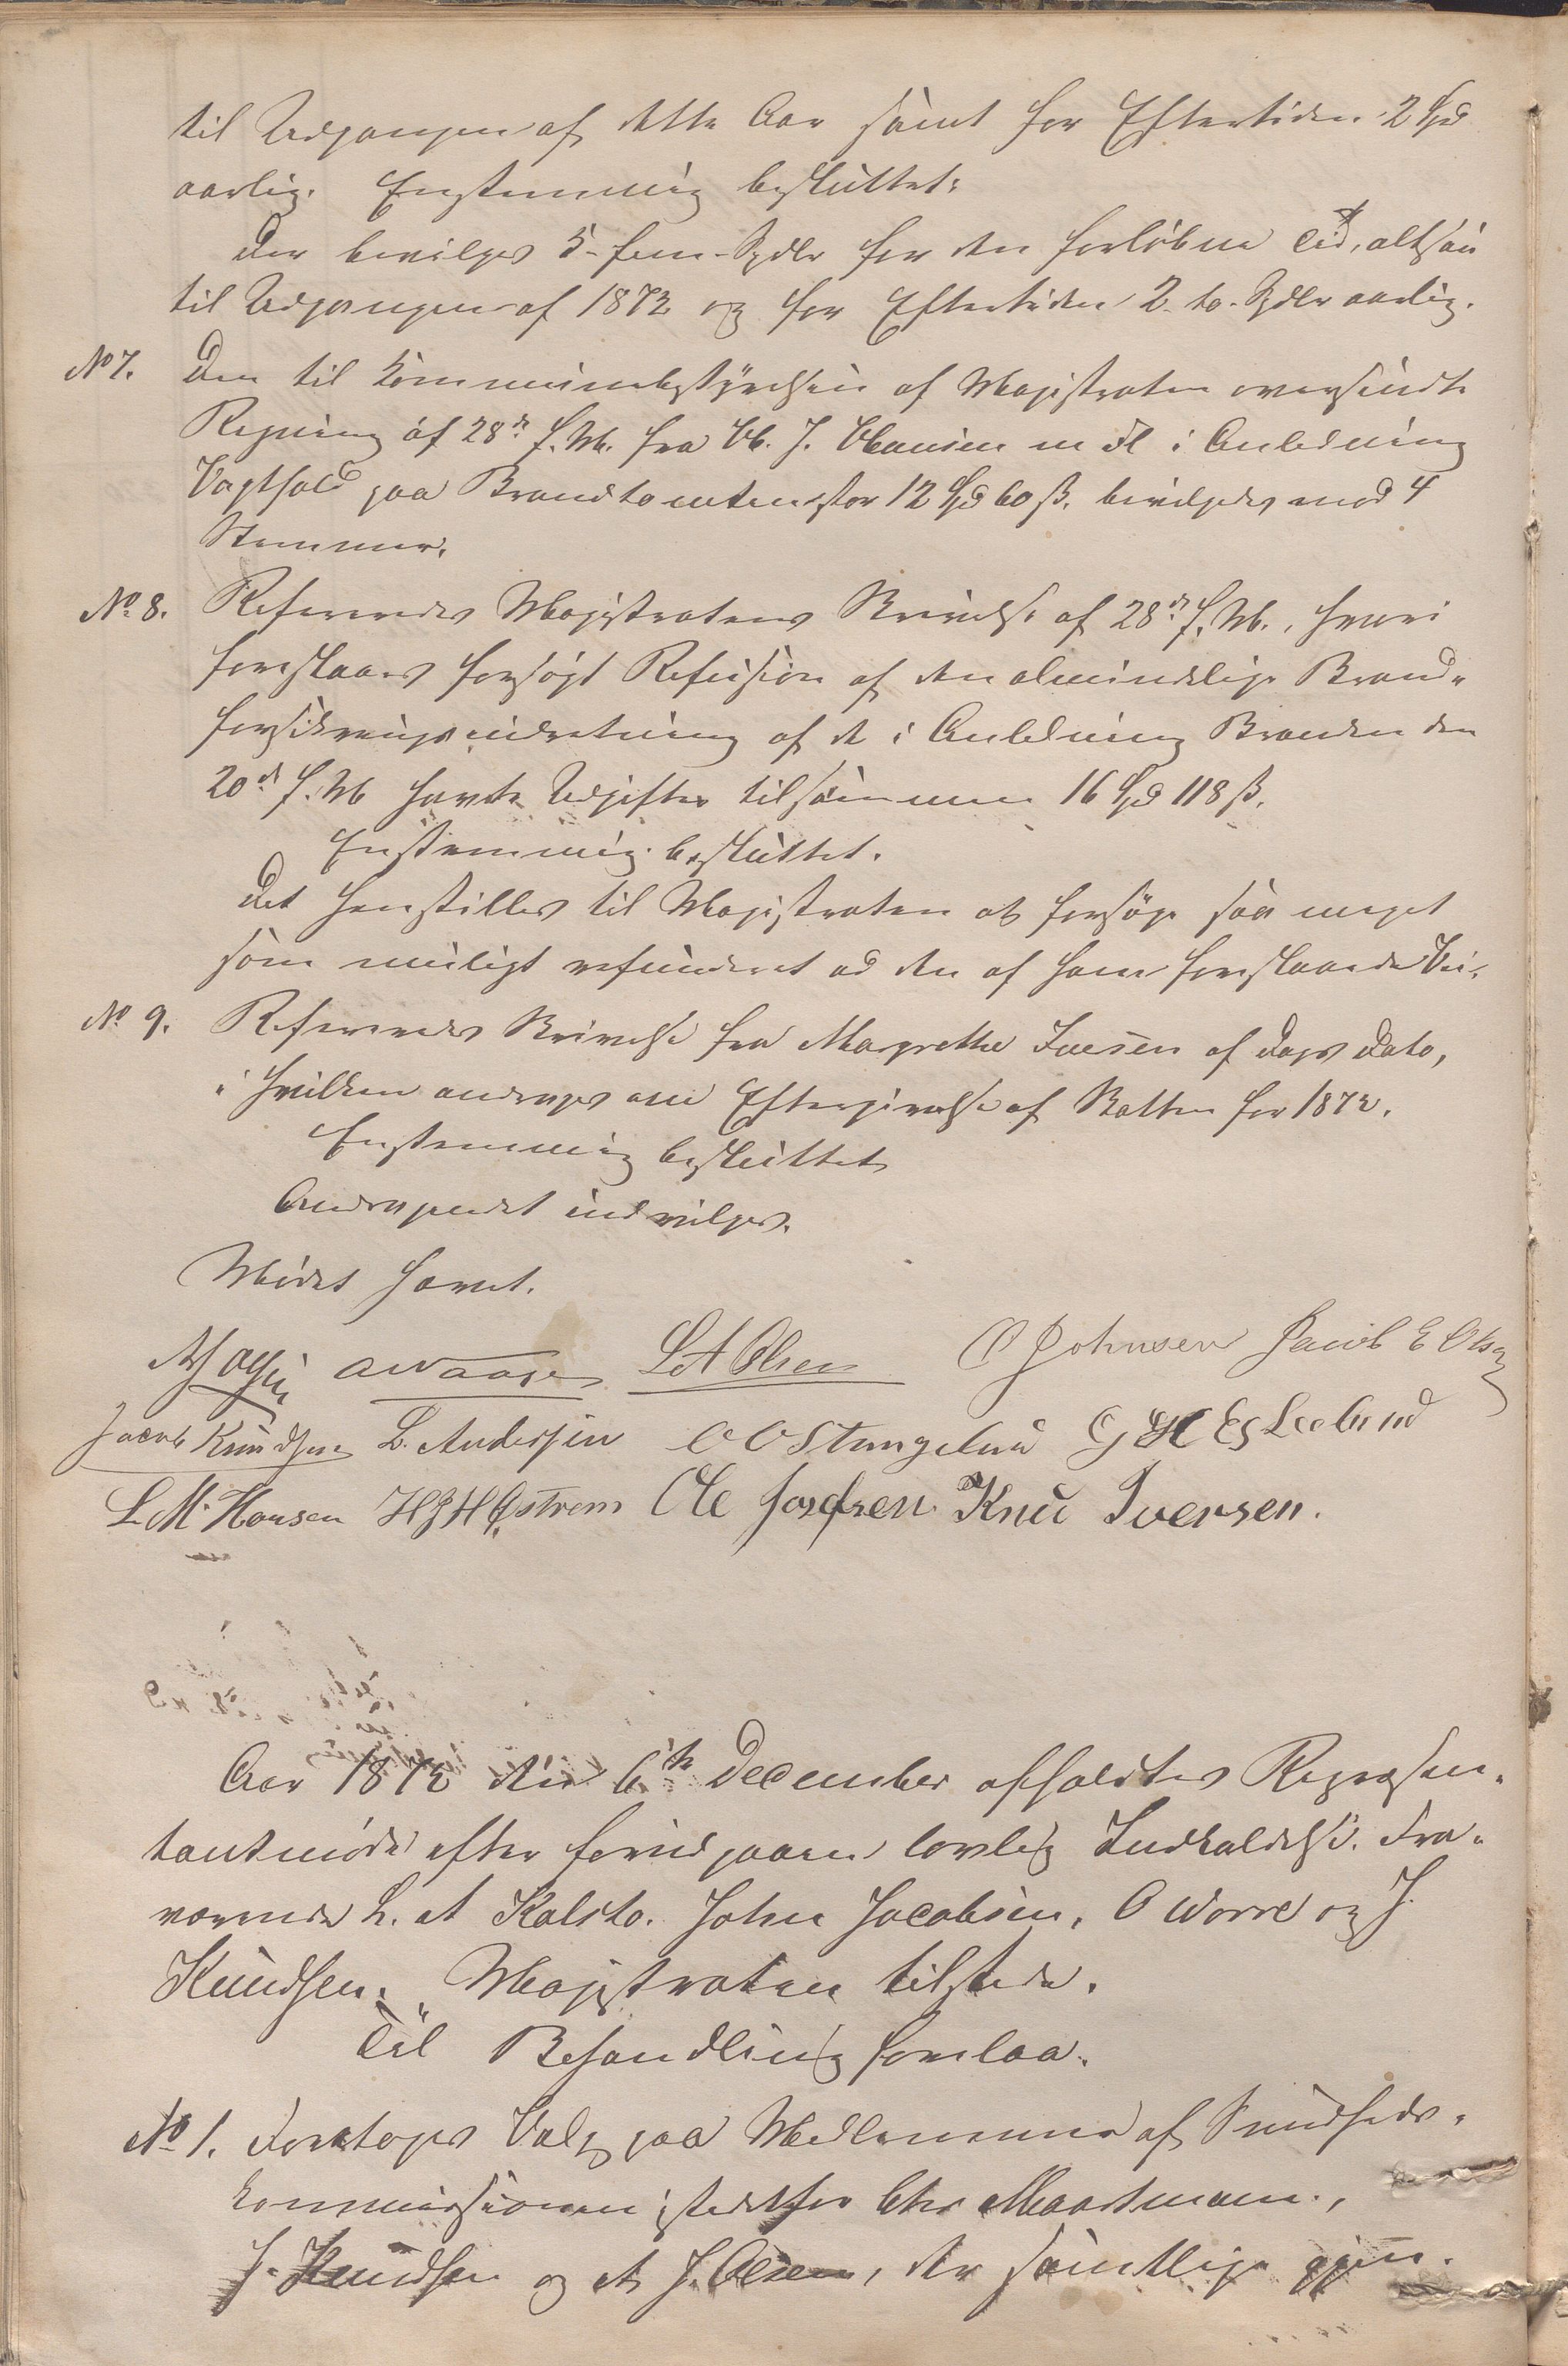 til Udgangen af dette Aar samt for Eftertiden 2 Spd
aarlig. Enstemmig besluttet:
Der bevilges 5 - fem - Spdlr for den forløbne Tid, altsaa
til Udgangen af 1872 og for Eftertiden 2 - to - Spdlr aarlig.
No 7. Den til Kommunebestyrelsen af Magistraten oversendte
Regning af 28de f. M. fra M. J. Hansen m Fl i Anledning
Vagthold paa Brandtomten stor 12 Spd 60 ß. bevilgedes mod 4
Stemmer.
No 8. Refereredes Magistratens Skrivelse af 28de f. M., hvori
foreslaaes forsøgt Refusion af den almindelige Brand-
forsikringsindretning af de i Anledning Branden den
20de f. M havte Udgifter tilsammen 16 Spd 118 ß.
Enstemmig besluttet.
Det henstilles til Magistraten at forsøge saa meget
som muligt refunderet ad den af ham foreslaaede Vei.
No 9. Refereredes Skrivelse fra Margrethe Iversen af Dags Dato,
i hvilken andrages om Eftergivelse af Skatten for 1872.
Enstemmig besluttet
Andragendet indvilges.
Mødet hævet.
A Waage L A Olsen O Johnsen Jacob E Olsen
Jacob Knudsen L. Andersen O O Stangeland G H Eskeland
L. M. Hansen H J H Østrem Ole Knud Iversen.
Aar 1872 den 6te December afholdtes Repræsen-
tantmøde efter forudgaaen lovlig Indkaldelse. Fra-
værende L. A Kolsto. John Jacobsen, O Worre og J.
Knudsen. Magistraten tilstede.
Til Behandling forelaa.
No 1. Foretoges Valg paa Medlemmer af Sundheds-
kommissionen istedetfor Chr Maartmann,
J. Knudsen og A J. Olsen, der samtlige gjen-